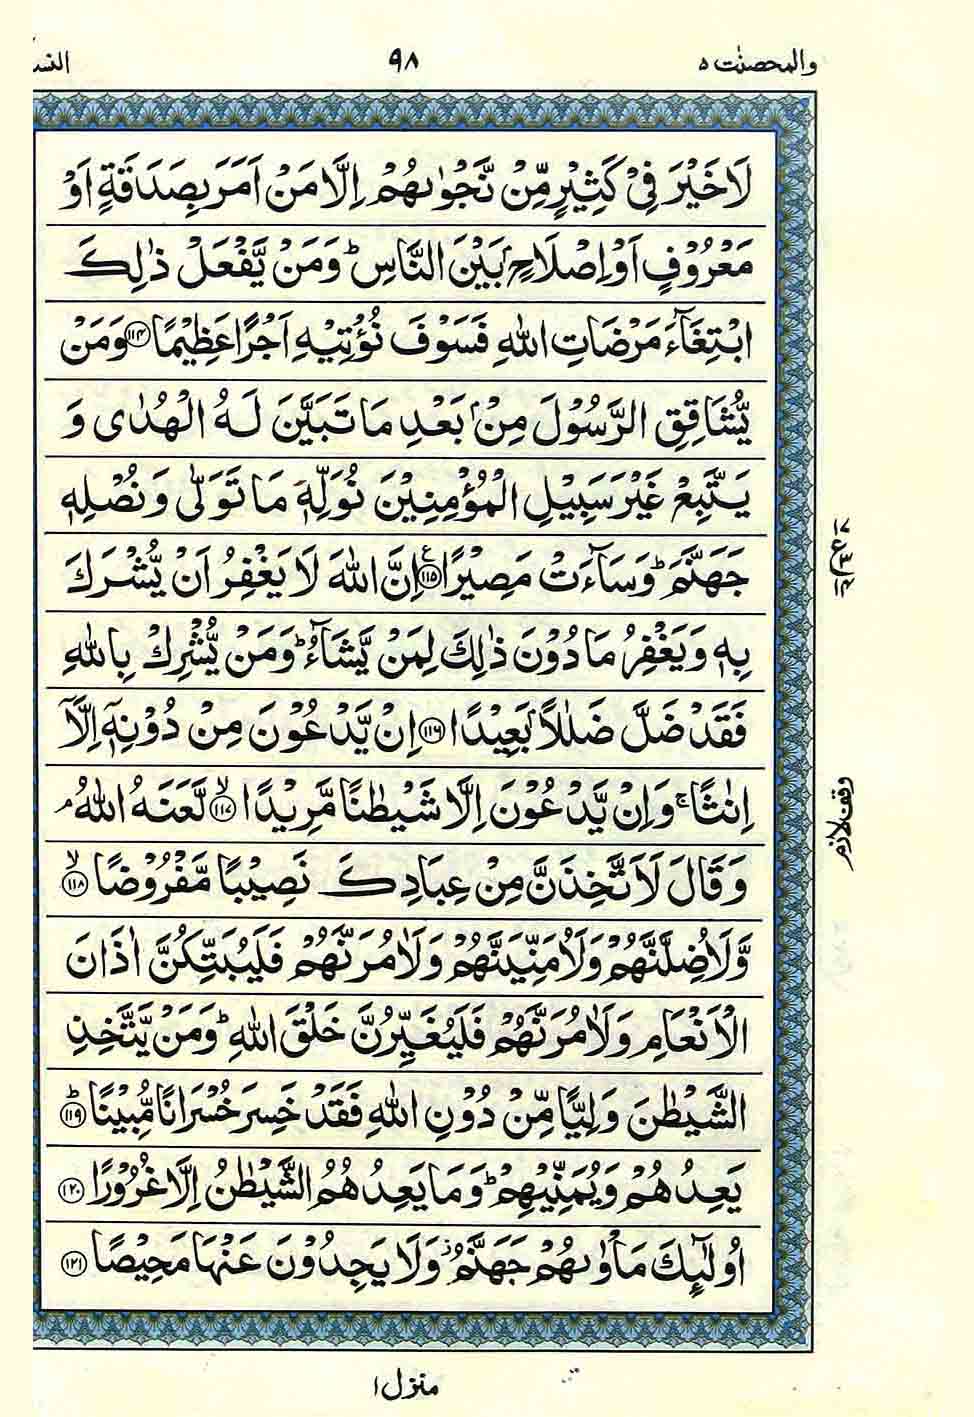 والمحصنٰت ٥ ٩٨ النسـ
لَا خَيْرَ فِيْ كَثِيْرٍ مِّنْ نَّجْوٰىهُمْ اِلَّا مَنْ اَمَرَ بِصَدَقَةٍ اَوْ
مَعْرُوْفٍ اَوْ اِصْلَاحٍۭ بَيْنَ النَّاسِ ؕ وَمَنْ يَّفْعَلْ ذٰلِكَ
ابْتِغَآءَ مَرْضَاتِ اللّٰهِ فَسَوْفَ نُؤْتِيْهِ اَجْرًا عَظِيْمًا ﴿۱۱۴﴾ وَمَنْ
يُّشَاقِقِ الرَّسُوْلَ مِنْۢ بَعْدِ مَا تَبَيَّنَ لَهُ الْهُدٰى وَ
يَتَّبِعْ غَيْرَ سَبِيْلِ الْمُؤْمِنِيْنَ نُوَلِّهٖ مَا تَوَلّٰى وَنُصْلِهٖ
جَهَنَّمَ ؕ وَسَآءَتْ مَصِيْرًا ﴿۱۱۵﴾ اِنَّ اللّٰهَ لَا يَغْفِرُ اَنْ يُّشْرَكَ
بِهٖ وَيَغْفِرُ مَا دُوْنَ ذٰلِكَ لِمَنْ يَّشَآءُ ؕ وَمَنْ يُّشْرِكْ بِاللّٰهِ
فَقَدْ ضَلَّ ضَلٰلًاۢ بَعِيْدًا ﴿۱۱۶﴾ اِنْ يَّدْعُوْنَ مِنْ دُوْنِهٖۤ اِلَّاۤ
اِنٰثًا ۚ وَاِنْ يَّدْعُوْنَ اِلَّا شَيْطٰنًا مَّرِيْدًا ﴿۱۱۷﴾ۙ لَّعَنَهُ اللّٰهُ ۘ
وَقَالَ لَاَتَّخِذَنَّ مِنْ عِبَادِكَ نَصِيْبًا مَّفْرُوْضًا ﴿۱۱۸﴾ۙ
وَّلَاُضِلَّنَّهُمْ وَلَاُمَنِّيَنَّهُمْ وَلَاٰمُرَنَّهُمْ فَلَيُبَتِّكُنَّ اٰذَانَ
الْاَنْعَامِ وَلَاٰمُرَنَّهُمْ فَلَيُغَيِّرُنَّ خَلْقَ اللّٰهِ ؕ وَمَنْ يَّتَّخِذِ
الشَّيْطٰنَ وَلِيًّا مِّنْ دُوْنِ اللّٰهِ فَقَدْ خَسِرَ خُسْرَانًا مُّبِيْنًا ﴿۱۱۹﴾ؕ
يَعِدُهُمْ وَيُمَنِّيْهِمْ ؕ وَمَا يَعِدُهُمُ الشَّيْطٰنُ اِلَّا غُرُوْرًا ﴿۱۲۰﴾
اُولٰٓئِكَ مَاْوٰىهُمْ جَهَنَّمُ ؗ وَلَا يَجِدُوْنَ عَنْهَا مَحِيْصًا ﴿۱۲۱﴾
وقف لازم
منزل ۱